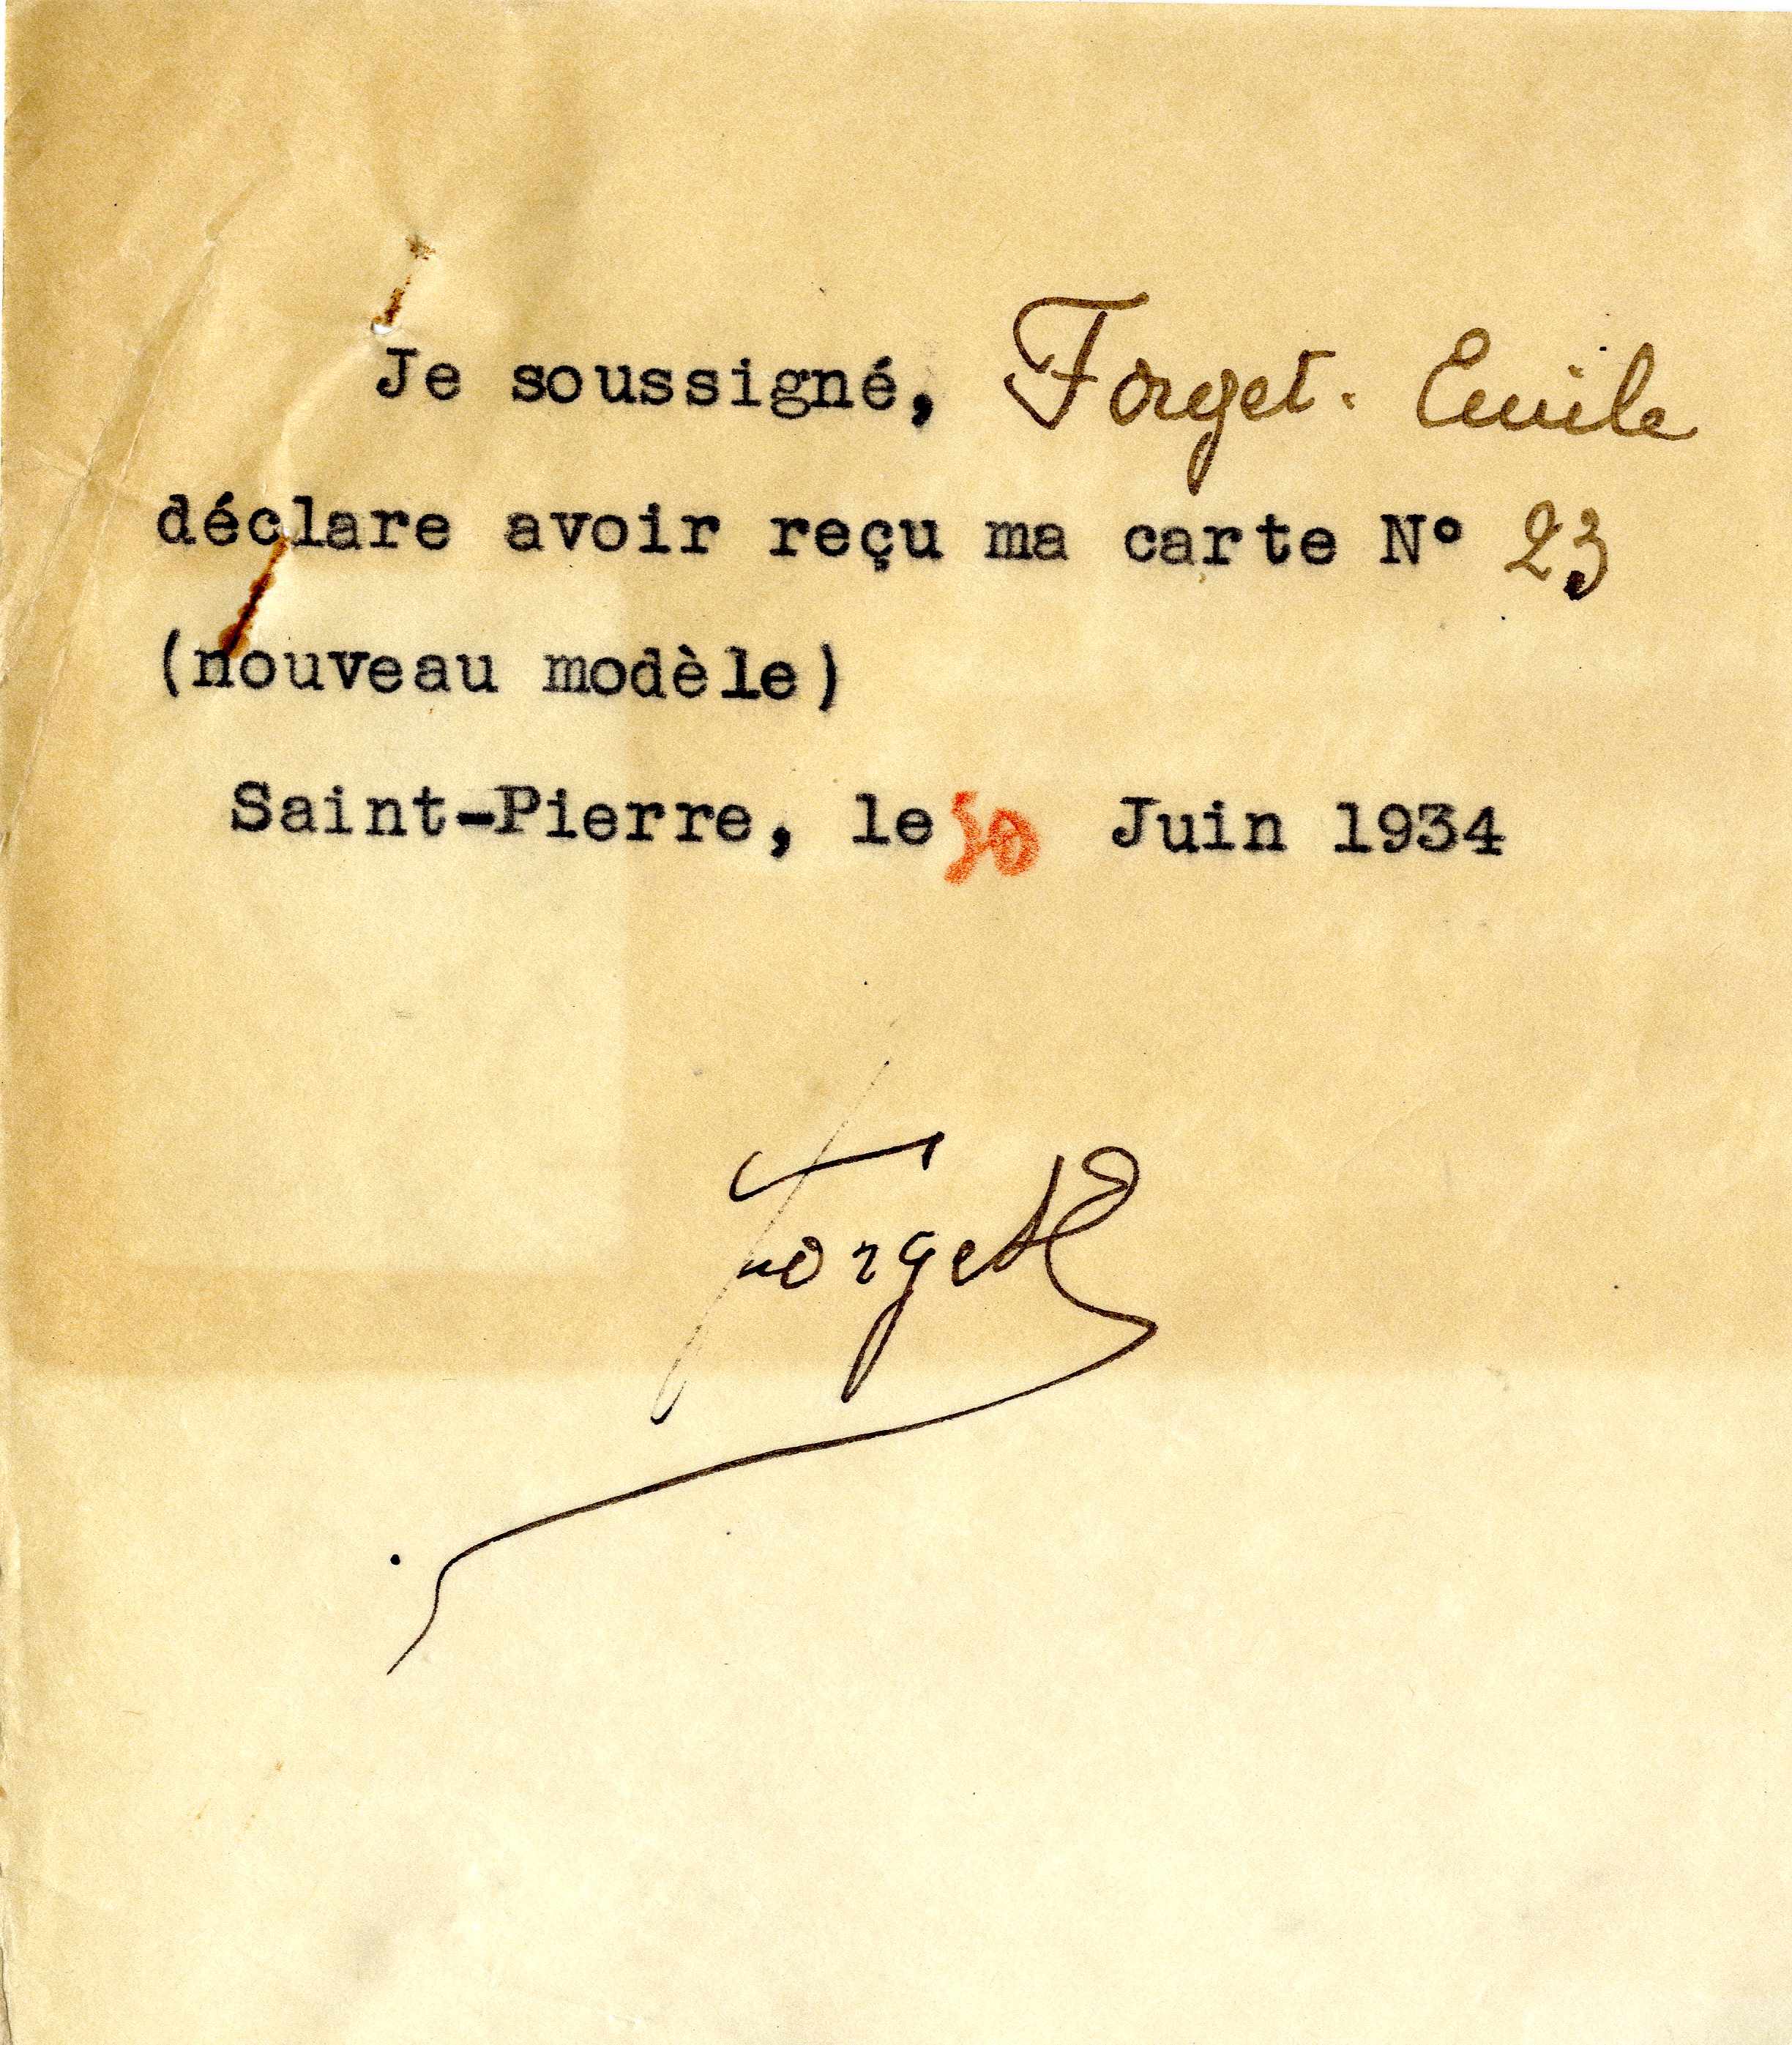 Je soussigné, Forget. Emile
déclare avoir reçu ma carte N° 23
(nouveau modèle)
Saint-Pierre, le 30 Juin 1934
Forget